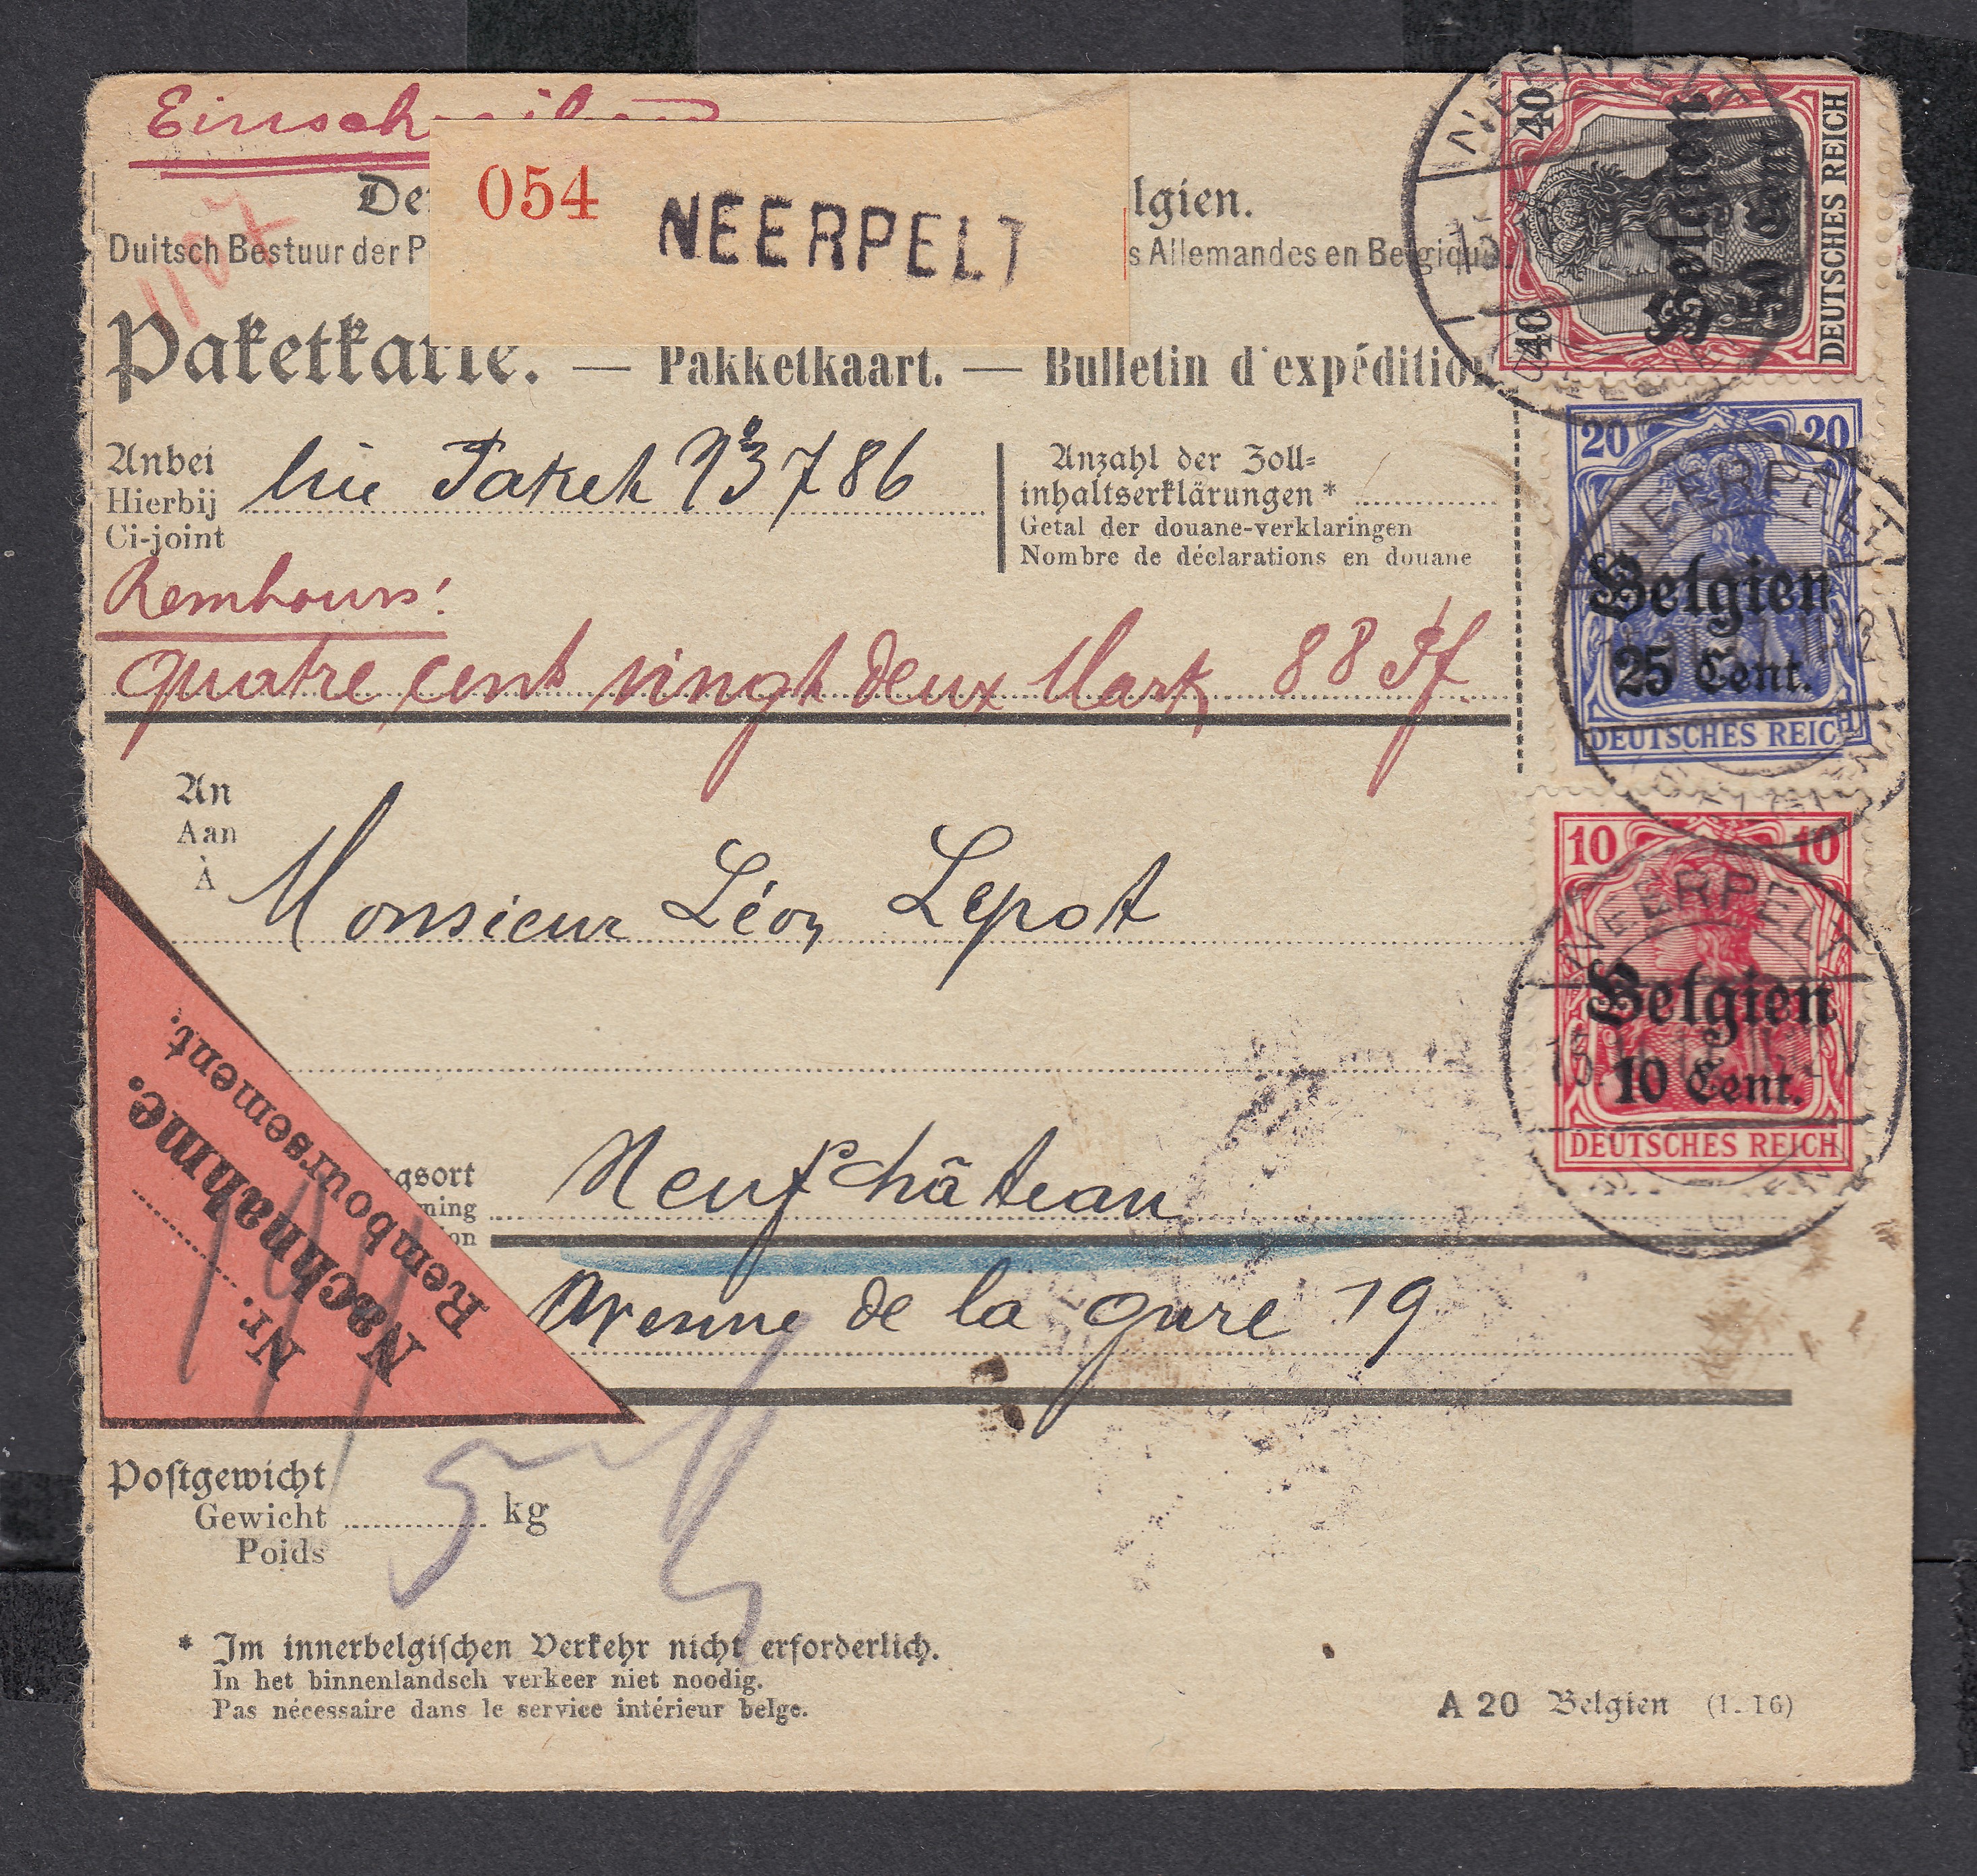 Einsch
De
lgien.
054 NEERPELT
Duitsch Bestuur der P
s Allemandes en Belgiqu
1107
Paketkarte. — Pakketkaart. — Bulletin d'expédition
Anbei
Hierbij
Ci-joint
Paket No 3786
Anzahl der Zoll=
inhaltserklärungen*
Getal der douane-verklaringen
Nombre de déclarations en douane
Rembours:
quatre cent vingt deux Mark 88 Pf.
An
Aan
À
Monsieur Léon Lepot
gsort
ning
on
Neufchâteau
Avenue de la gare 19
Nr.
Nachnahme.
Remboursement.
Postgewicht
Gewicht
Poids
5 kg
* Im innerbelgischen Verkehr nicht erforderlich.
In het binnenlandsch verkeer niet noodig.
Pas nécessaire dans le service intérieur belge.
A 20 Belgien (1. 16)
40 40
Belgien
50 Cent.
DEUTSCHES REICH
NEERPELT
20 20
Belgien
25 Cent.
DEUTSCHES REICH
NEERPELT
BELGIEN
10 10
Belgien
10 Cent.
DEUTSCHES REICH
NEERPELT